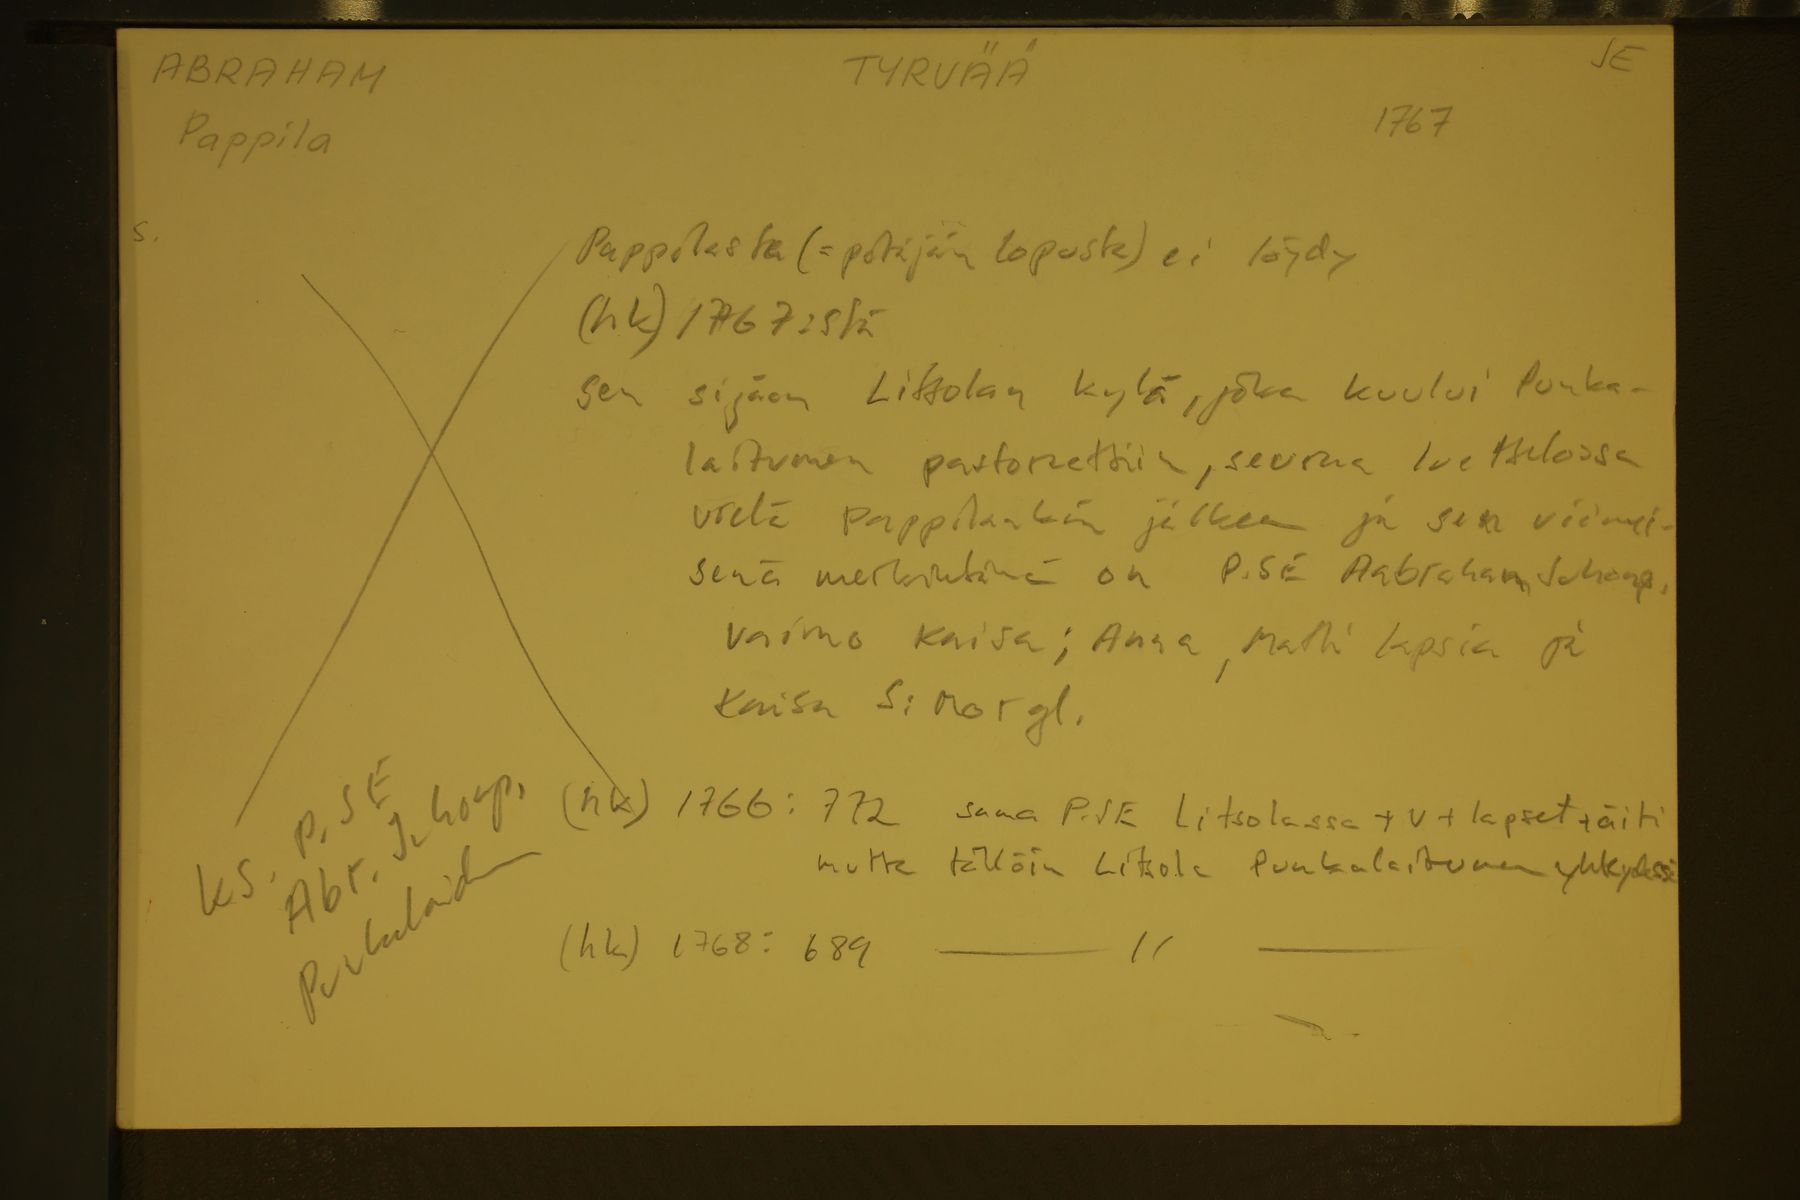 ABRAHAM TYRVÄÄ SE
Pappila 1767
s.
Pappilasta (= pitäjän lopusta) ei löydy
(hk) 1767:stä
sen sijaan Liitsolan kylä, joka kuului Punka-
laitumen pastoraattiin, seuraa luettelossa
vielä pappilankin jälkeen ja sen viimei-
senä merkintänä on P.SE Aabraham Juhonp.
vaimo Kaisa; Anna, Matti lapsia ja
Kaisa S: Mor gl.
(hk) 1766: 772 sama P.SE Litsolassa + v + lapset + äiti
mutta tällöin Litsola Punkalaitumen yhteydessä
(hk) 1768: 689 —— 11 ——
KS. P.SE
Abr. Juhonp.
Punkalaidun